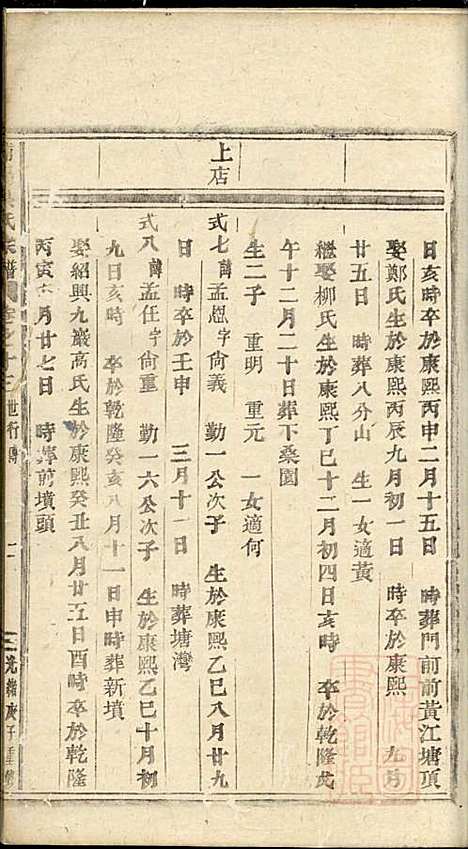 日亥時卒於康熙丙申二月十五日　時葬門前前黃江塘頂
娶鄭氏生於康熙丙辰九月初一日　時卒於康熙　九月
廿五日　時葬八分山　生一女適黃
繼娶柳氏生於康熙丁巳十二月初四日亥時　卒於乾隆戊
午十二月二十日葬下桑園
生二子　重明　重元　一女適何
上店
式七諱孟　字尙義　勤一公次子　生於康熙乙巳八月廿九
日　時卒於壬申　三月十一日　時葬塘灣
式八諱孟任字尙重　勤一六公次子　生於康熙乙巳十月初
九日亥時　卒於乾隆癸亥八月十一日申時葬新墳
娶紹興九巖高氏生於康熙癸丑八月廿五日酉時卒於乾隆
丙寅　月廿七日　時葬前墳頭
氏宗譜　卷之十三　世行傳　光緖庚子重修